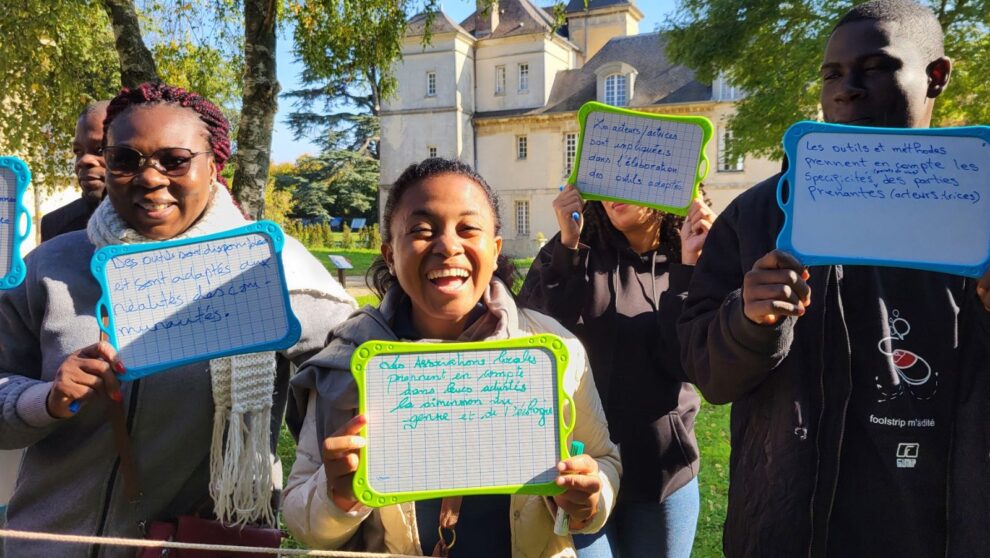 Des outils sont disponibles
et sont adaptés aux
réalités des com-
munautés.
Les Associations locales
prennent en compte
dans leurs activités
la dimension du
genre et de l'écologie
Les acteurs/actrices
sont impliquées
dans l'élaboration
des outils adaptés
Les outils et méthodes
prennent en compte les
spécificités des parties
Prenantes (acteurs·trices)
foolstrip m'adité